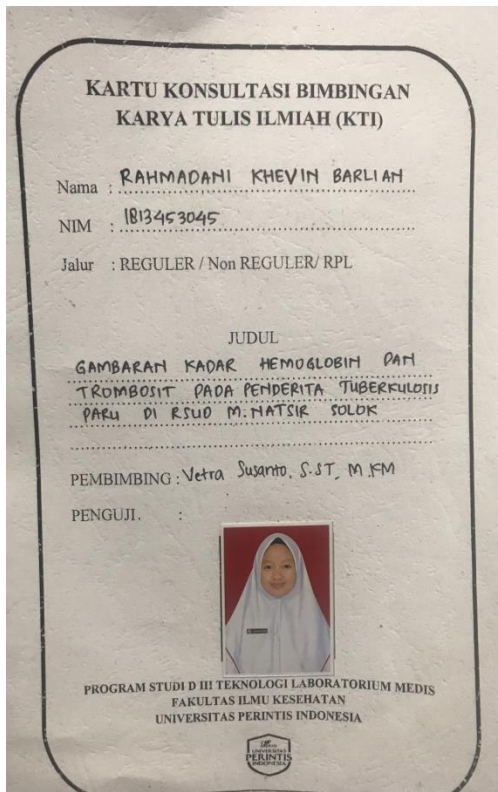 KARTU KONSULTASI BIMBINGAN
KARYA TULIS ILMIAH (KTI)
Nama : RAHMADANI KHEVIN BARLIAN
NIM : 1813453045
Jalur : REGULER / Non REGULER/ RPL
JUDUL
GAMBARAN KADAR HEMOGLOBIN DAN
TROMBOSIT PADA PENDERITA TUBERKULOSIS
PARU DI RSUD M.NATSIR SOLOK
PEMBIMBING : Vetra Susanto, S.ST, M.KM
PENGUJI. :
PROGRAM STUDI D III TEKNOLOGI LABORATORIUM MEDIS
FAKULTAS ILMU KESEHATAN
UNIVERSITAS PERINTIS INDONESIA
UNIVERSITAS
PERINTIS
INDONESIA